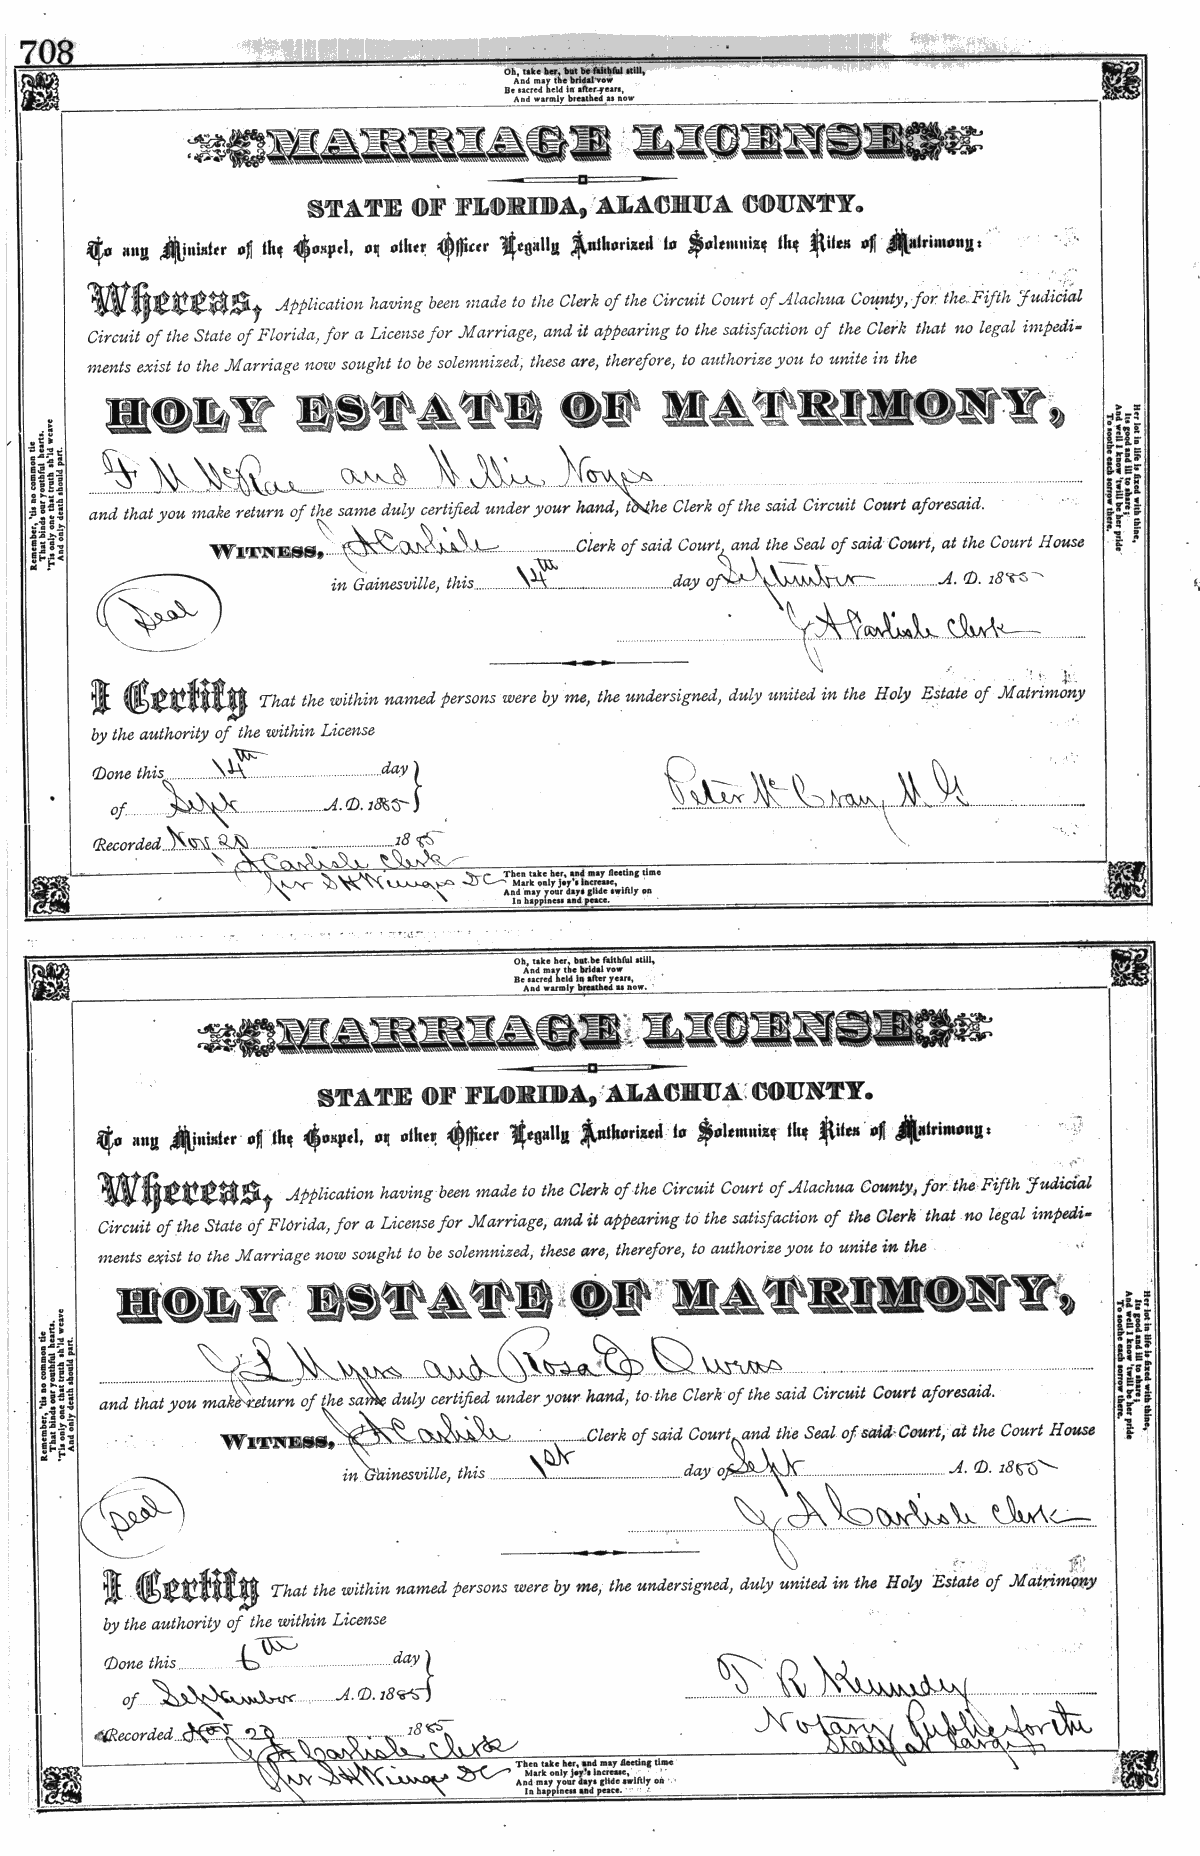 708
Oh, take her, but be faithful still,
And may the bridal vow
Be sacred held in after years,
And warmly breathed as now
MARRIAGE LICENSE
STATE OF FLORIDA, ALACHUA COUNTY.
To any Minister of the Gospel, or other Officer Legally Authorized to Solemnize the Rites of Matrimony:
Whereas, Application having been made to the Clerk of the Circuit Court of Alachua County, for the Fifth Judicial
Circuit of the State of Florida, for a License for Marriage, and it appearing to the satisfaction of the Clerk that no legal impedi-
ments exist to the Marriage now sought to be solemnized, these are, therefore, to authorize you to unite in the
HOLY ESTATE OF MATRIMONY,
F M McRae and Millie Noyes
and that you make return of the same duly certified under your hand, to the Clerk of the said Circuit Court aforesaid.
WITNESS, J A Carlisle Clerk of said Court, and the Seal of said Court, at the Court House
in Gainesville, this 14th day of September A. D. 1885
Seal
J A Carlisle Clerk
I Certify That the within named persons were by me, the undersigned, duly united in the Holy Estate of Matrimony
by the authority of the within License
Done this 14th day
of Sept A. D. 1885
Peter McCray, M. G.
Recorded Nov 20 1885
J A Carlisle Clerk
per S H Wienges DC
Then take her, and may fleeting time
Mark only joy's increase,
And may your days glide swiftly on
In happiness and peace.
Remember, 'tis no common tie
That binds our youthful hearts.
'Tis only one that truth sh'ld weave
And only death should part.
Her lot in life is fixed with thine,
Its good and ill to share;
And well I know 'twill be her pride
To soothe each sorrow there.
Oh, take her, but be faithful still,
And may the bridal vow
Be sacred held in after years,
And warmly breathed as now.
MARRIAGE LICENSE
STATE OF FLORIDA, ALACHUA COUNTY.
To any Minister of the Gospel, or other Officer Legally Authorized to Solemnize the Rites of Matrimony:
Whereas, Application having been made to the Clerk of the Circuit Court of Alachua County, for the Fifth Judicial
Circuit of the State of Florida, for a License for Marriage, and it appearing to the satisfaction of the Clerk that no legal impedi-
ments exist to the Marriage now sought to be solemnized, these are, therefore, to authorize you to unite in the
HOLY ESTATE OF MATRIMONY,
J L Myers and Rosa E Owens
and that you make return of the same duly certified under your hand, to the Clerk of the said Circuit Court aforesaid.
WITNESS, J A Carlisle Clerk of said Court, and the Seal of said Court, at the Court House
in Gainesville, this 1st day of Sept A. D. 1885
Seal
J A Carlisle Clerk
I Certify That the within named persons were by me, the undersigned, duly united in the Holy Estate of Matrimony
by the authority of the within License
Done this 6th day
of September A. D. 1885
T R Kennedy
Notary Public for the
State at Large
Recorded Nov 20 1885
J A Carlisle Clerk
per S H Wienges DC
Then take her, and may fleeting time
Mark only joy's increase,
And may your days glide swiftly on
In happiness and peace.
Remember, 'tis no common tie
That binds our youthful hearts.
'Tis only one that truth sh'ld weave
And only death should part.
Her lot in life is fixed with thine,
Its good and ill to share;
And well I know 'twill be her pride
To soothe each sorrow there.